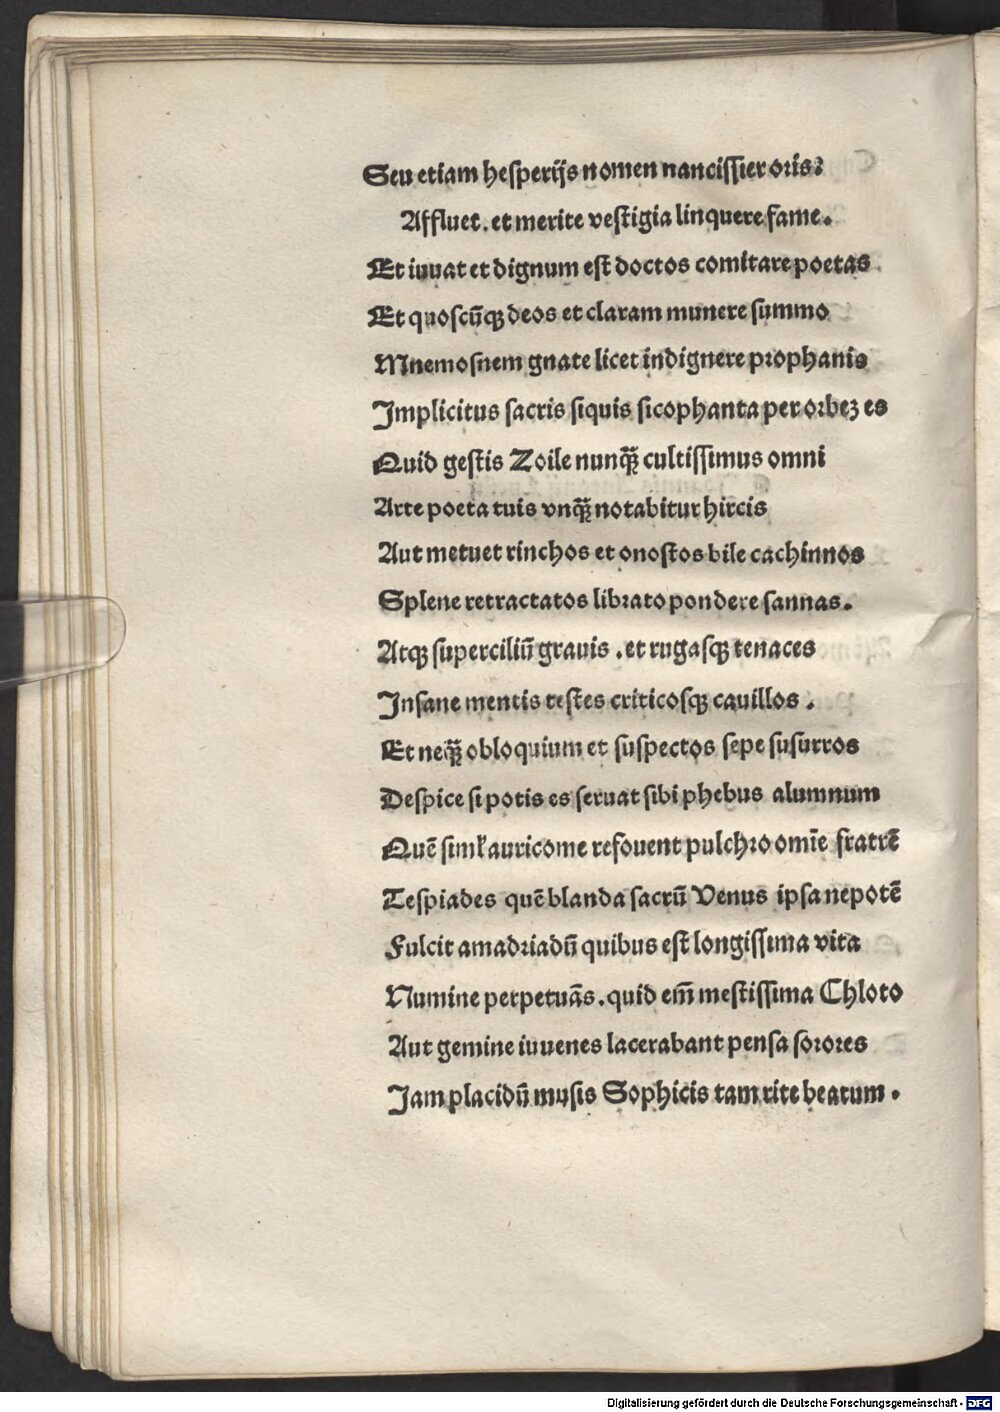 Seu etiam heſperijs nomen nanciſſier oꝛis?
Affluet. et merite veſtigia linquere fame.
Et iuuat et dignum eſt doctos comitare poetas.
Et quoſcūqꝫ deos et claram munere ſummo
Mnemoſnem gnate licet indignere pꝛophanis
Implicitus ſacris ſiquis ſicophanta per oꝛbeꝫ es
Quid geſtis Zoile nunqȝ̄ cultiſſimus omni
Arte poeta tuis vnqȝ̄ notabitur hircis
Aut metuet rinchos et onoſtos bile cachinnos
Splene retractatos libꝛato pondere ſannas.
Atqꝫ ſuperciliū grauis .et rugaſqꝫ tenaces
Inſane mentis teſtes criticoſqꝫ cauillos .
Et neqȝ̄ obloquium et ſuſpectos ſepe ſuſurros
Deſpice ſi potis es ſeruat ſibi phebus alumnum
Quē ſimł auricome refouent pulchꝛo omīe fratrē
Teſpiades quē blanda ſacrū Venus ipſa nepotē
Fulcit amadꝛiadū quibus eſt longiſſima vita
Numine perpetuās .quid em̄ meſtiſſima Chloto
Aut gemine iuuenes lacerabant penſa ſoꝛoꝛes
Jam placidū muſis Sophicis tam rite beatum .
Digitalisierung gefördert durch die Deutsche Forschungsgemeinschaft - DFG